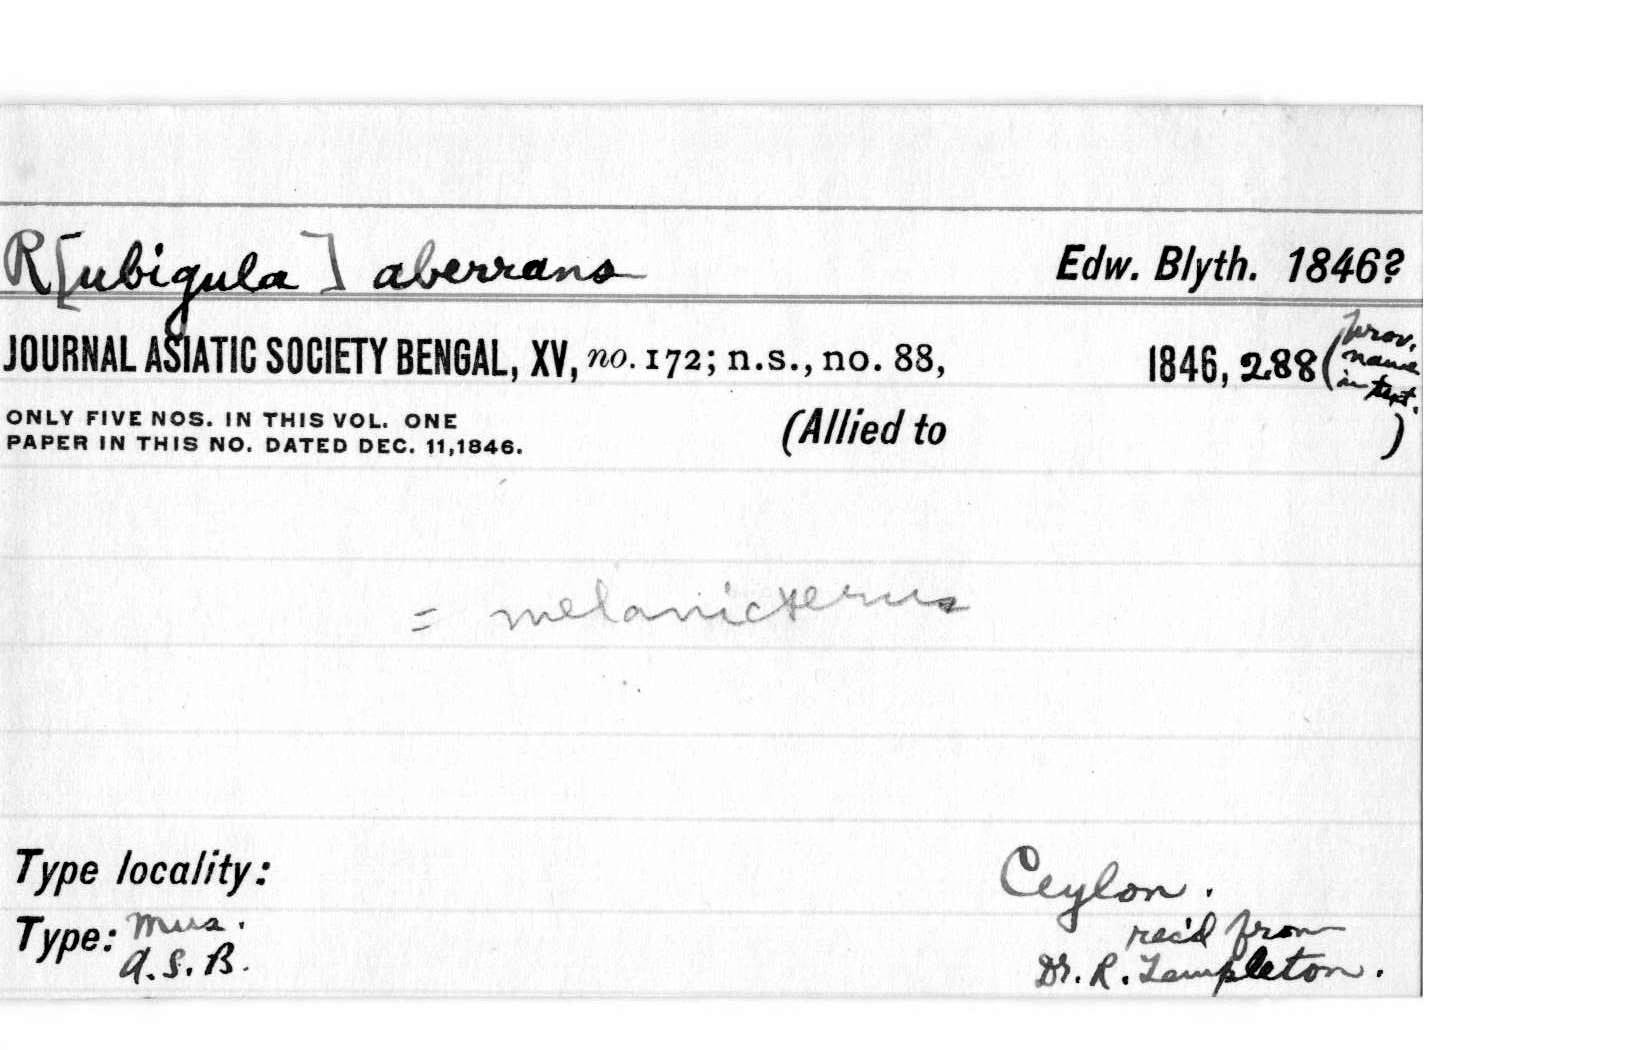 R[ubigula] aberrans Edw. Blyth. 1846?
JOURNAL ASIATIC SOCIETY BENGAL, XV, no. 172; n.s., no. 88, 1846, 288 (prov.
name
in text.
ONLY FIVE NOS. IN THIS VOL. ONE
PAPER IN THIS NO. DATED DEC. 11,1846.
(Allied to )
= melanicterus
Type locality: Ceylon.
Type: Mus.
A.S.B.
rec'd from
Dr. R. Templeton.